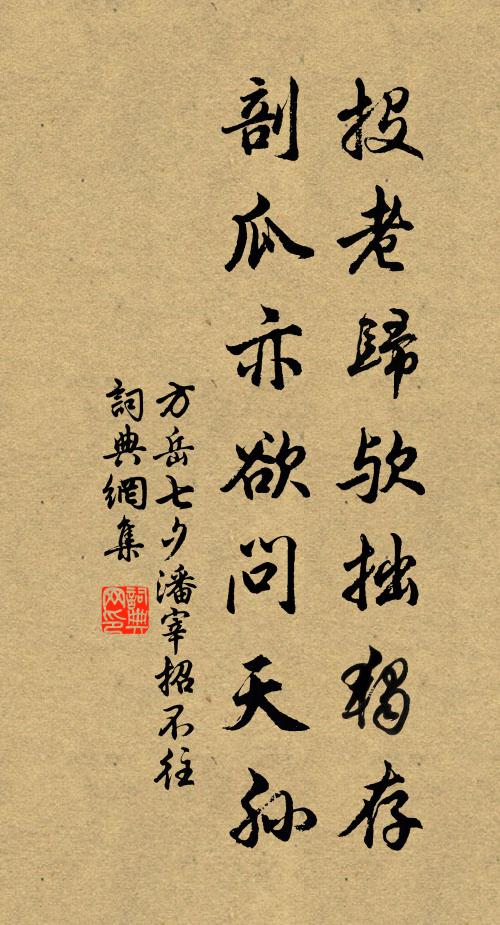 投老歸欤拙猶存
剖瓜亦欲問天孙
方岳七夕潘宰招不往
詞典網集
詞典
网印